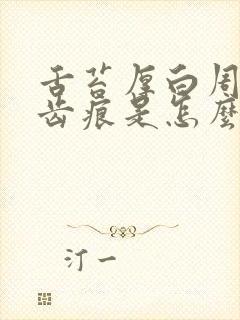 舌苔厚白周
齿痕是怎麼
汀一